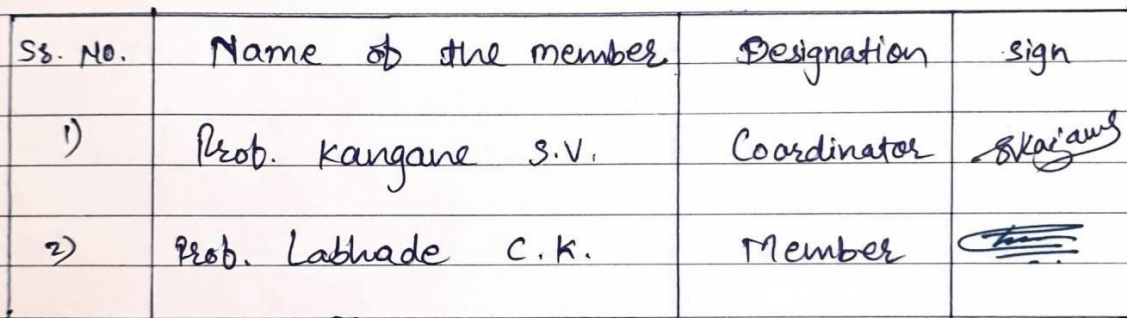 Sr. No. Name of the member Designation sign
1) Prof. Kangane S.V. Coordinator
2) Prof. Labhade C.K. Member